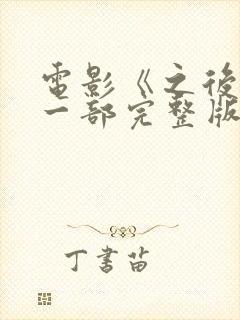 電影《之後
一部完整版
丁書苗